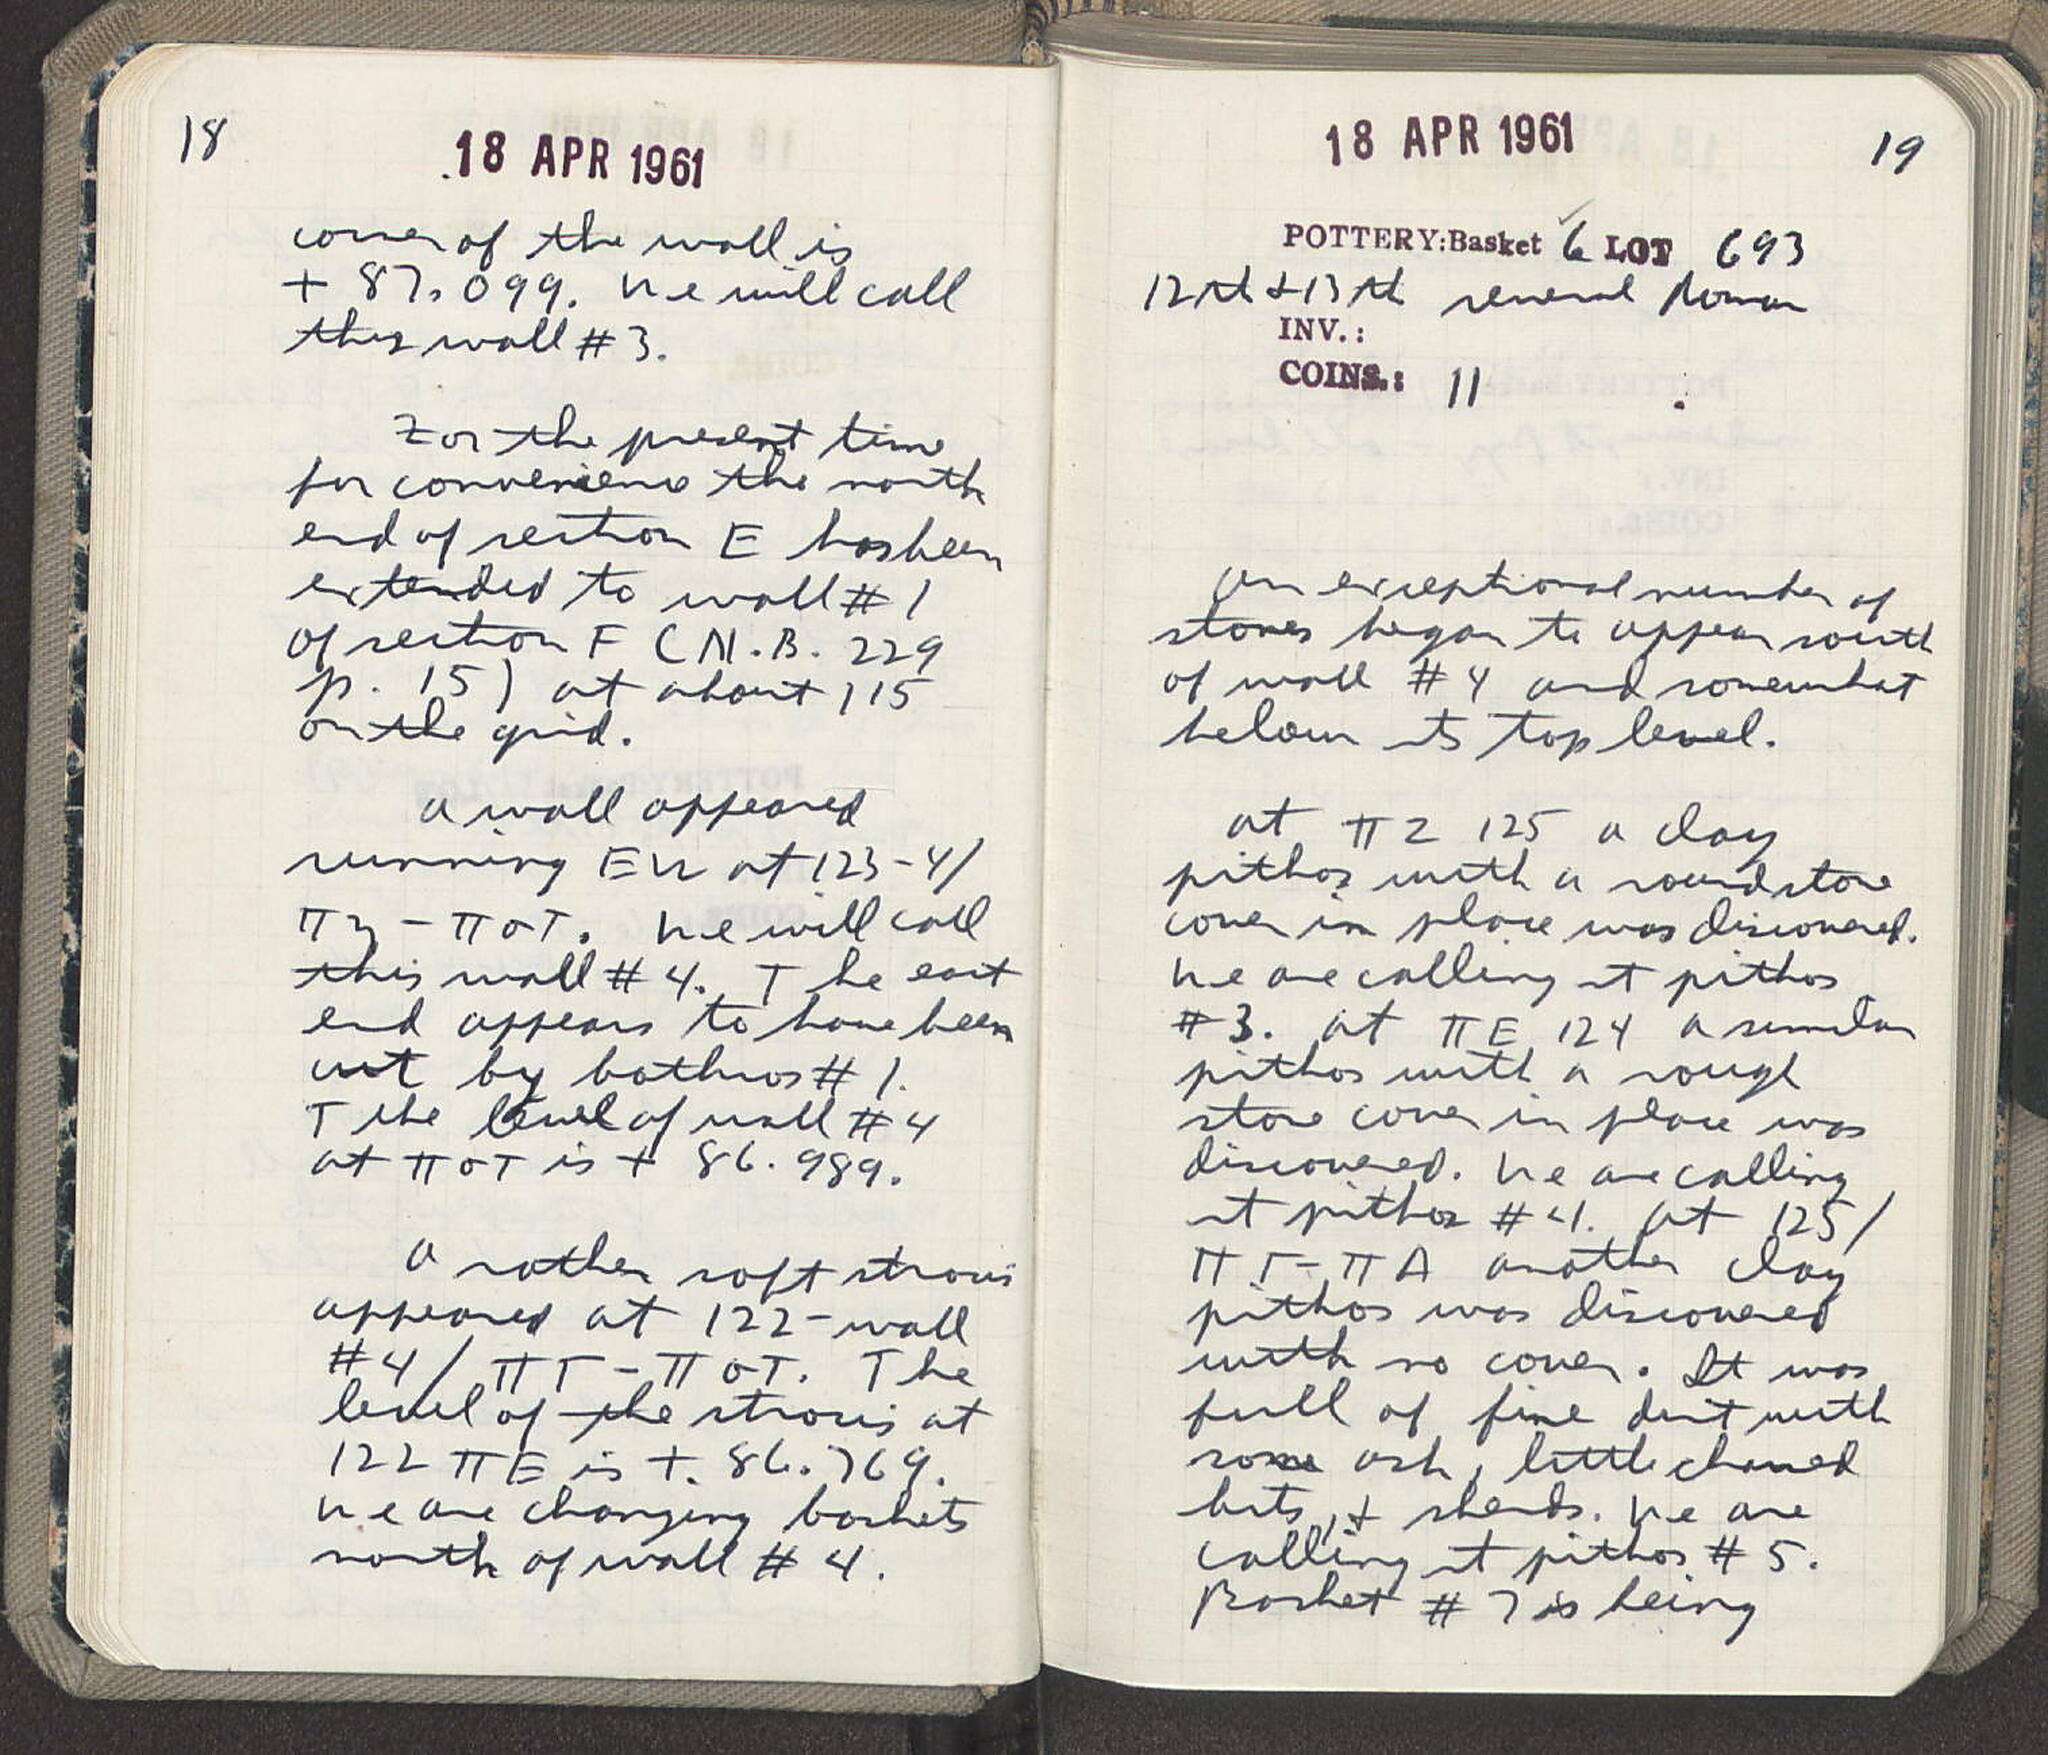 18
18 APR 1961
corner of the wall is
+ 87.099. We will call
this wall # 3.
For the present time
for convenience the north
end of section E has been
extended to wall # 1
of section F (N.B. 229
p. 15) at about 115
on the grid.
A wall appeared
running EW at 123-4/
ΠΣT. We will call
this wall # 4. The east
end appears to have been
cut by bothros # 1.
The level of wall # 4
at Π σΤ is + 86.989.
A rather soft stroses
appeared at 122 - wall
# 4 / ΠΓ - Π σΤ. The
level of the strosis at
122 ΠE is + 86.769.
We are changing baskets
north of wall # 4.
18 APR 1961
19
POTTERY: Basket 6 LOT 693
12th & 13th several Roman
INV.:
COINS.: 11
An exceptional number of
stones began to appear south
of wall # 4 and somewhat
below its top level.
At ΠZ 125 a clay
pithos with a round stone
cover in place was discovered.
We are calling it pithos
# 3. At ΠE 124 a similar
pithos with a rough
stone cover in place was
discovered. We are calling
it pithos # 4. At 125/
ΠΓ-ΠΔ another clay
pithos was discovered
with no cover. It was
full of fine dirt with
some ash, little charred
bits, & sherds. We are
calling it pithos # 5.
Basket # 7 is being